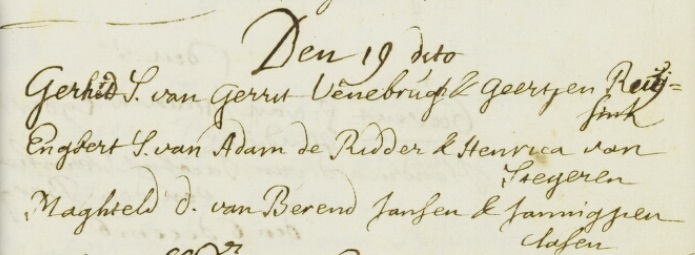 Den 19 dito
Gerhid S. van Gerrit Venebrugh & Geertjen Reutj=
sink
Engbert S. van Adam de Ridder & Henrica van
Stegeren
Maghteld d. van Berend Jansen & Jannigjen
Clasen